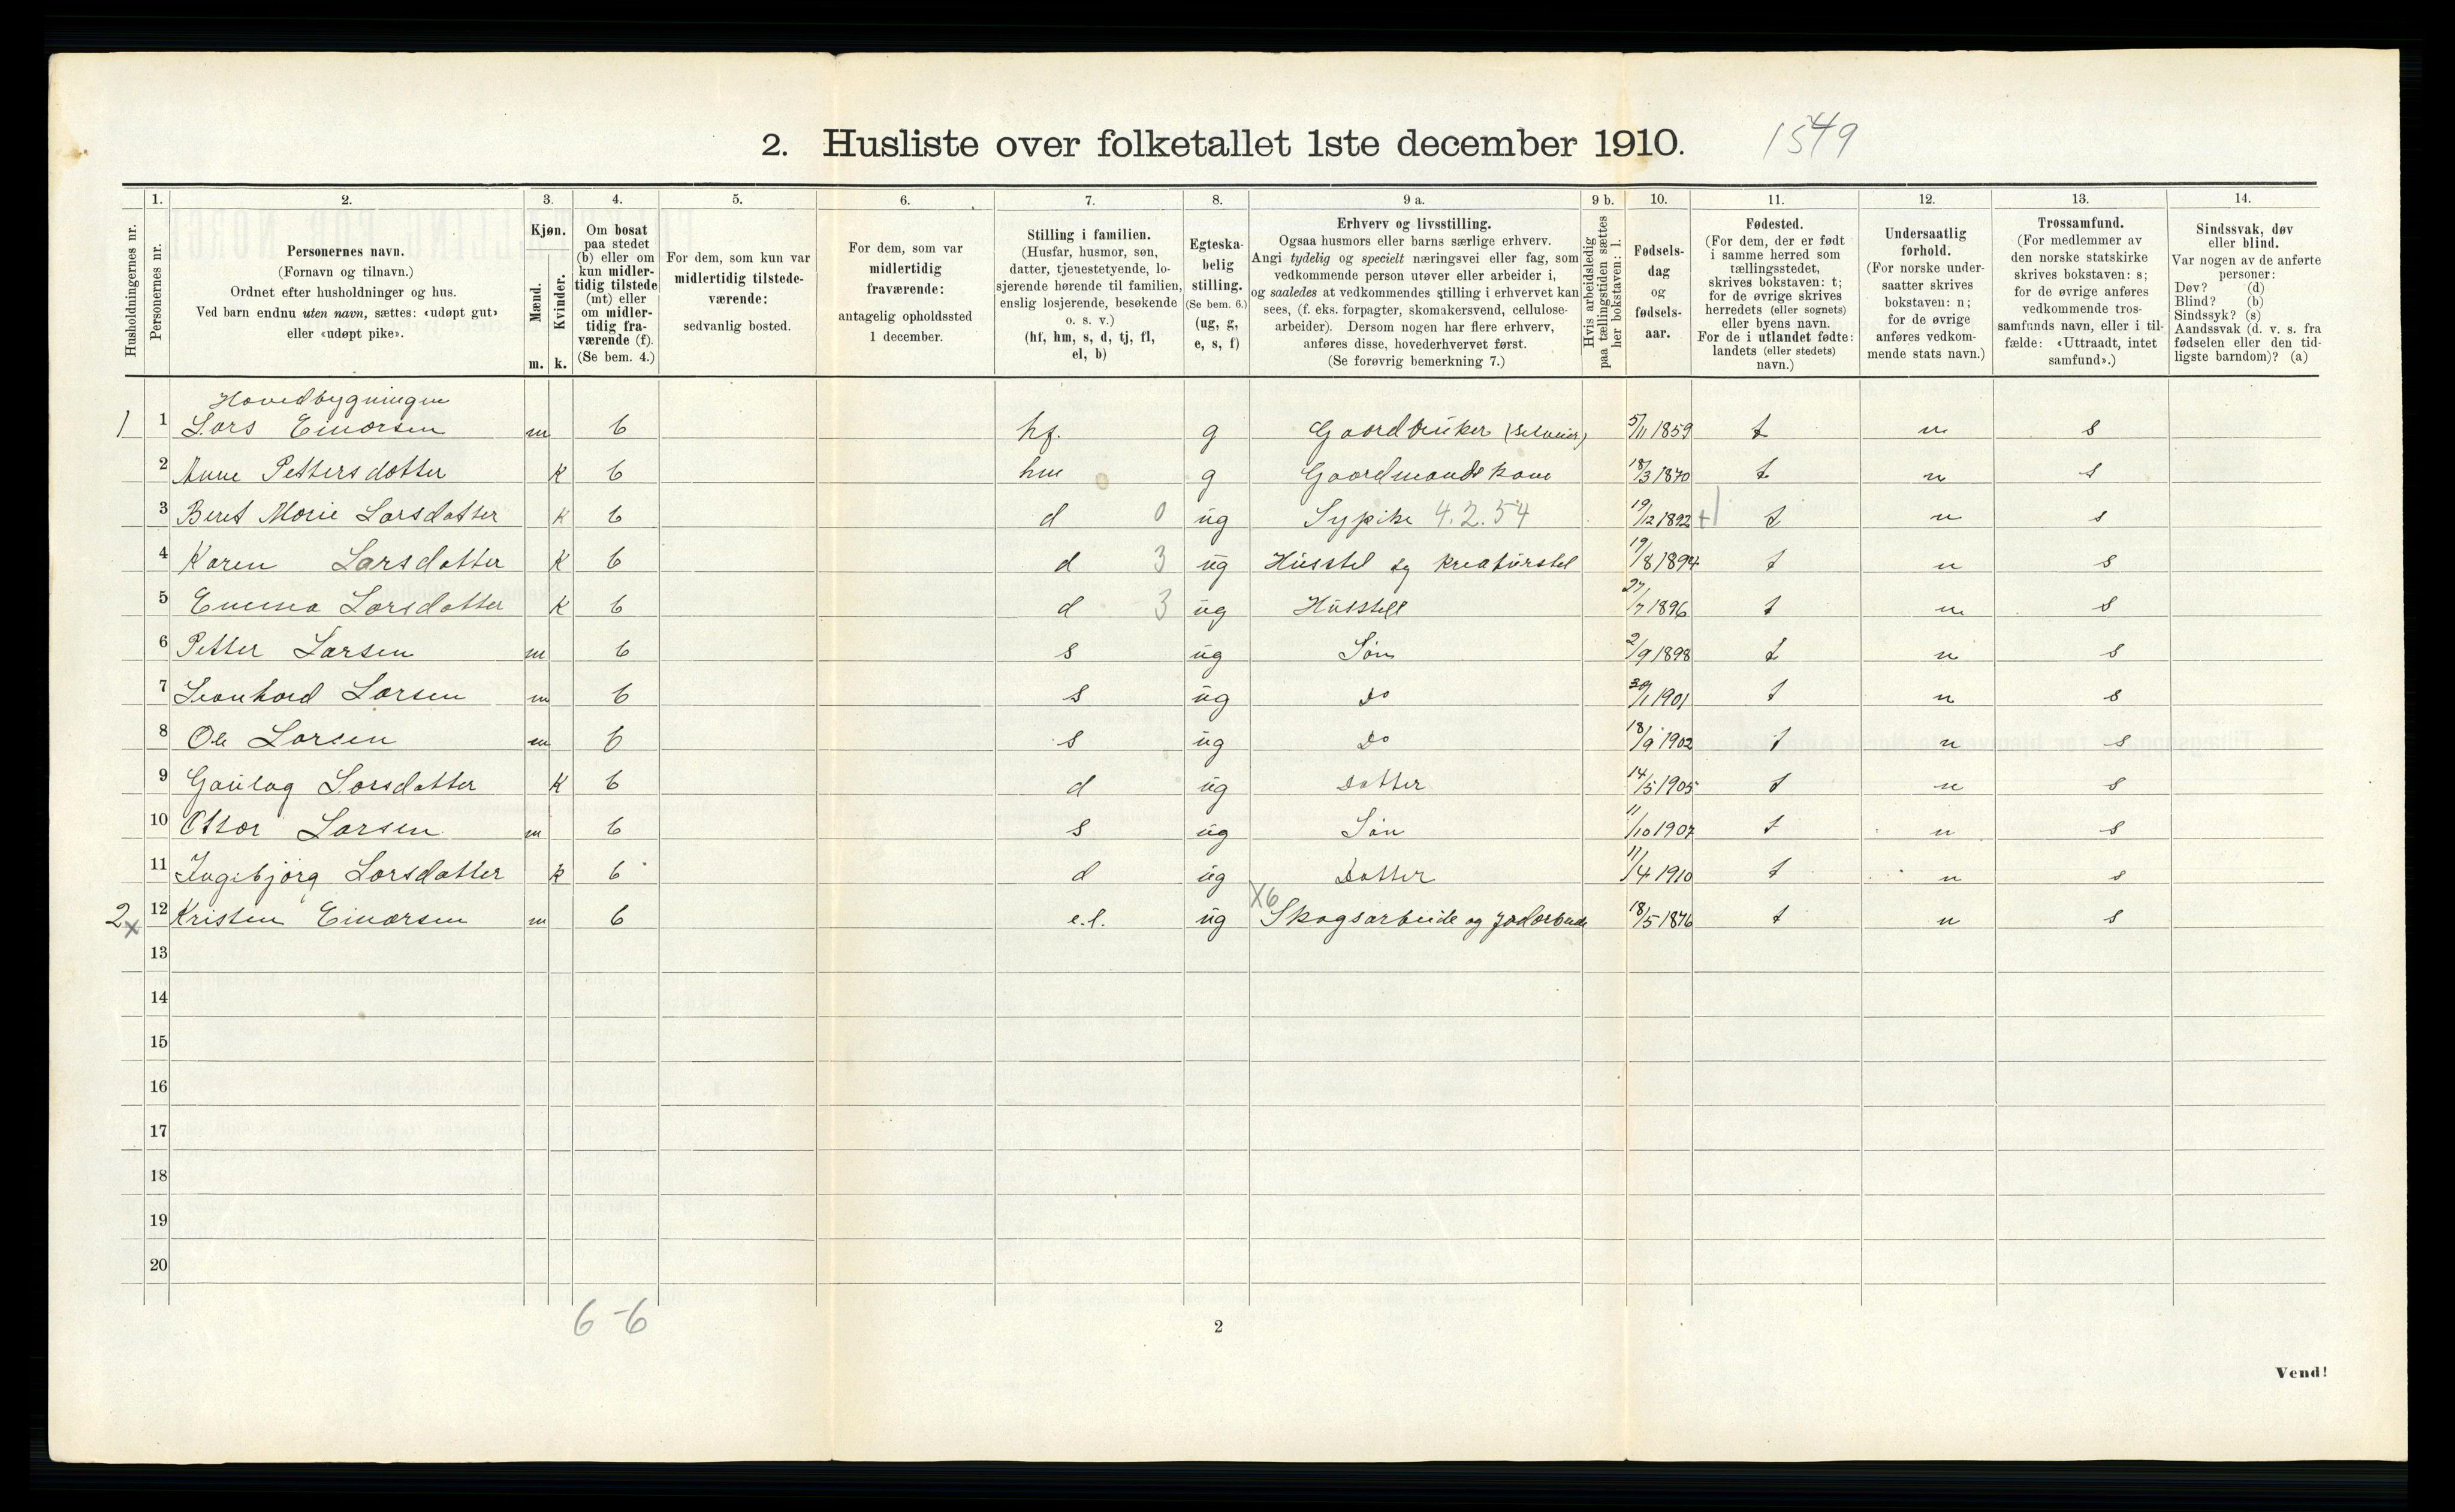 2. Husliste over folketallet 1ste december 1910. 1549
1. 2. 3. 4. 5. 6. 7. 8. 9 a. 9 b. 10. 11. 12. 13. 14.
Husholdningernes nr.
Personernes nr.
Personernes navn.
(Fornavn og tilnavn.)
Ordnet efter husholdninger og hus.
Ved barn endnu uten navn, sættes: «udøpt gut»
eller «udøpt pike».
Kjøn.
Mænd.
Kvinder.
m. k.
Om bosat
paa stedet
(b) eller om
kun midler-
tidig tilstede
(mt) eller
om midler-
tidig fra-
værende (f).
(Se bem. 4.)
For dem, som kun var
midlertidig tilstede-
værende:
sedvanlig bosted.
For dem, som var
midlertidig
fraværende:
antagelig opholdssted
1 december.
Stilling i familien.
(Husfar, husmor, søn,
datter, tjenestetyende, lo-
sjerende hørende til familien,
enslig losjerende, besøkende
o. s. v.)
(hf, hm, s, d, tj, fl,
el, b)
Egteska-
belig
stilling.
(Se bem. 6.)
(ug, g,
e, s, f)
Erhverv og livsstilling.
Ogsaa husmors eller barns særlige erhverv.
Angi tydelig og specielt næringsvei eller fag, som
vedkommende person utøver eller arbeider i,
og saaledes at vedkommendes stilling i erhvervet kan
sees, (f. eks. forpagter, skomakersvend, cellulose-
arbeider). Dersom nogen har flere erhverv,
anføres disse, hovederhvervet først.
(Se forøvrig bemerkning 7.)
Hvis arbeidsledig
paa tællingstiden sættes
her bokstaven: l.
Fødsels-
dag
og
fødsels-
aar.
Fødested.
(For dem, der er født
i samme herred som
tællingsstedet,
skrives bokstaven: t;
for de øvrige skrives
herredets (eller sognets)
eller byens navn.
For de i utlandet fødte:
landets (eller stedets)
navn.)
Undersaatlig
forhold.
(For norske under-
saatter skrives
bokstaven: n;
for de øvrige
anføres vedkom-
mende stats navn.)
Trossamfund.
(For medlemmer av
den norske statskirke
skrives bokstaven: s;
for de øvrige anføres
vedkommende tros-
samfunds navn, eller i til-
fælde: «Uttraadt, intet
samfund».)
Sindssvak, døv
eller blind.
Var nogen av de anførte
personer:
Døv? (d)
Blind? (b)
Sindssyk? (s)
Aandssvak (d. v. s. fra
fødselen eller den tid-
ligste barndom)? (a)
Hovedbygningen
1 1 Lars Einarsen m b hf. g Gaardbruker (Selveier) 5/11 1859 t n s
2 Anne Pettersdatter k b hm g Gaardmandskone 18/3 1870 t n s
3 Beret Marie Larsdatter k b d 0 ug Sypike 4.2.54 19/12 1892 t n s
4 Karen Larsdatter k b d 3 ug Husstel og kreaturstel 19/8 1894 t n s
5 Emma Larsdatter k b d 3 ug Husstell 27/7 1896 t n s
6 Petter Larsen m b s ug Søn 2/9 1898 t n s
7 Leonhard Larsen m b s ug do 30/1 1901 t n s
8 Ole Larsen m b s ug do 18/9 1902 t n s
9 Gaulag Larsdatter k b d ug datter 14/5 1905 t n s
10 Ottar Larsen m b s ug Søn 11/10 1907 t n s
11 Ingebjørg Larsdatter k b d ug Datter 11/4 1910 t n s
2 x 12 Kristen Einarsen m b e.l. ug X6 Skogsarbeide og jordarbeide 18/5 1876 t n s
13
14
15
16
17
18
19
20
6-6
2
Vend!